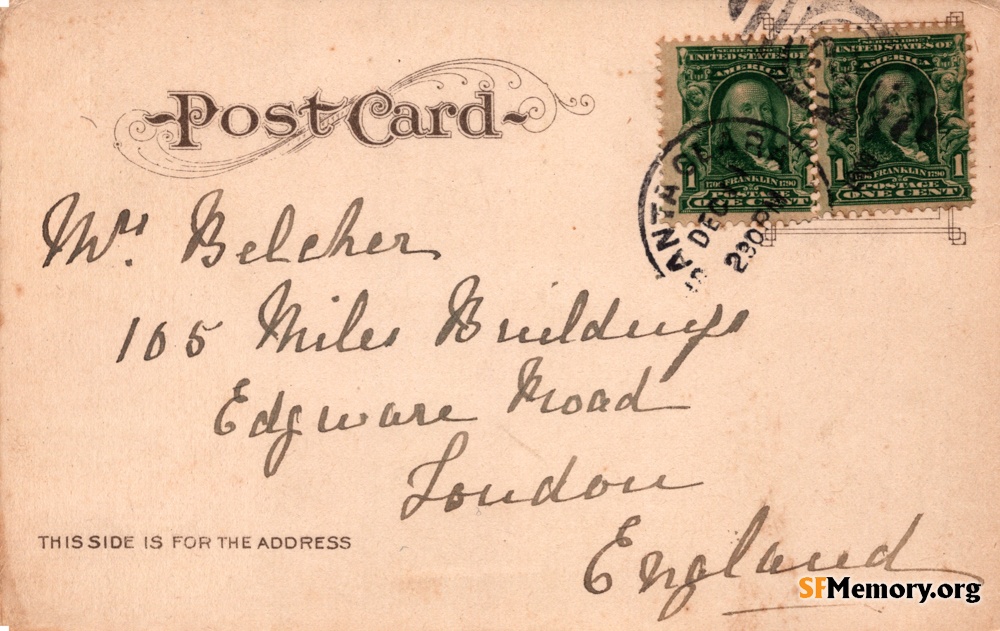 Post Card
SERIES 1902
UNITED STATES OF
AMERICA
1 FRANKLIN 1790
POSTAGE
ONE CENT
UNITED STATES OF
AMERICA
1 FRANKLIN 1790 1
POSTAGE
ONE CENT
SANTA
DEC
230PM
Mrs Belcher
105 Miles Buildings
Edgware Road
London
England
THIS SIDE IS FOR THE ADDRESS
SFMemory.org